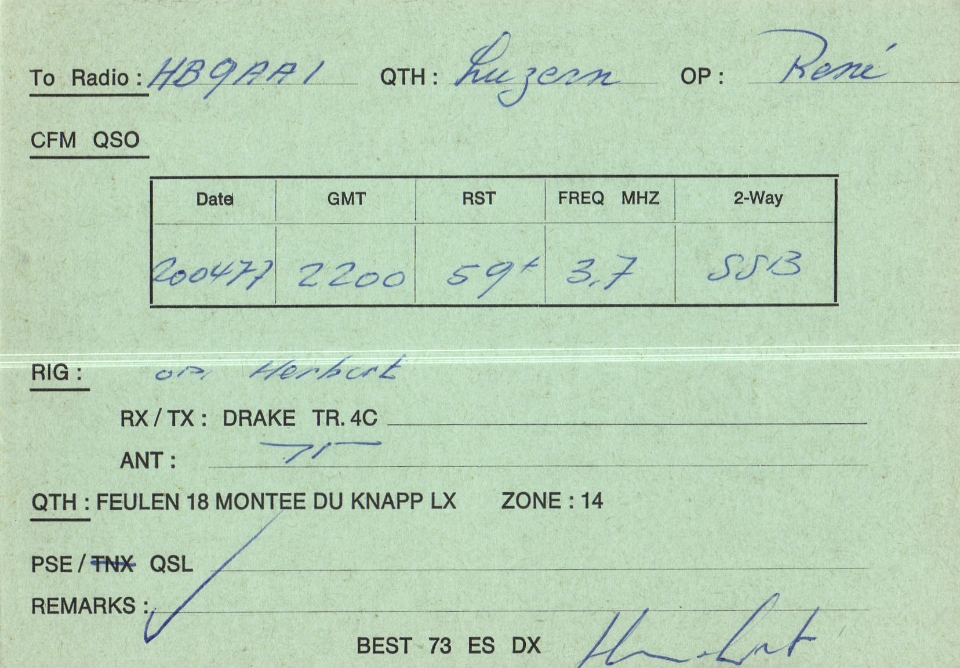 To Radio : HB9AAI QTH : Luzern OP : René
CFM QSO
Date GMT RST FREQ MHZ 2-Way
200477 2200 59+ 3,7 SSB
RIG : op. Herbert
RX / TX : DRAKE TR. 4C
ANT :
QTH : FEULEN 18 MONTEE DU KNAPP LX ZONE : 14
PSE / TNX QSL
REMARKS :
BEST 73 ES DX Herbert